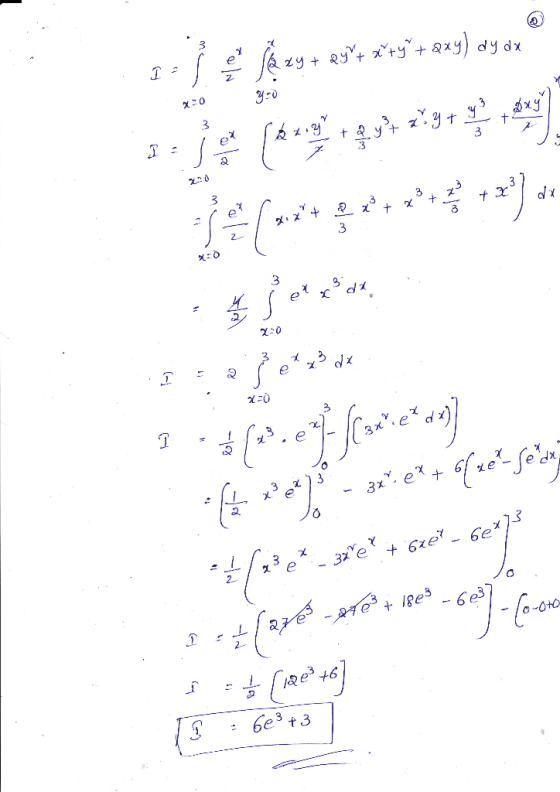 ②
I = ∫_{x=0}^{3} e^x/2 ∫_{y=0}^{x} (2xy + 2y² + x² + y² + 2xy) dy dx
I = ∫_{x=0}^{3} e^x/2 [2x·y²/2 + 2/3 y³ + x²·y + y³/3 + 2xy²/2]
= ∫_{x=0}^{3} e^x/2 [x·x² + 2/3 x³ + x³ + x³/3 + x³] dx
= 4/2 ∫_{x=0}^{3} e^x x³ dx.
I = 2 ∫_{x=0}^{3} e^x x³ dx
I = 1/2 [x³·e^x]_0^3 - ∫[3x²·e^x dx)]
= [1/2 x³ e^x]_0^3 - 3x²·e^x + 6[xe^x - ∫e^x dx]
= 1/2 [x³ e^x - 3x²e^x + 6xe^x - 6e^x]_0^3
I = 1/2 [27e³ - 27e³ + 18e³ - 6e³] - [0-0+0
I = 1/2 [12e³ + 6]
I = 6e³ + 3